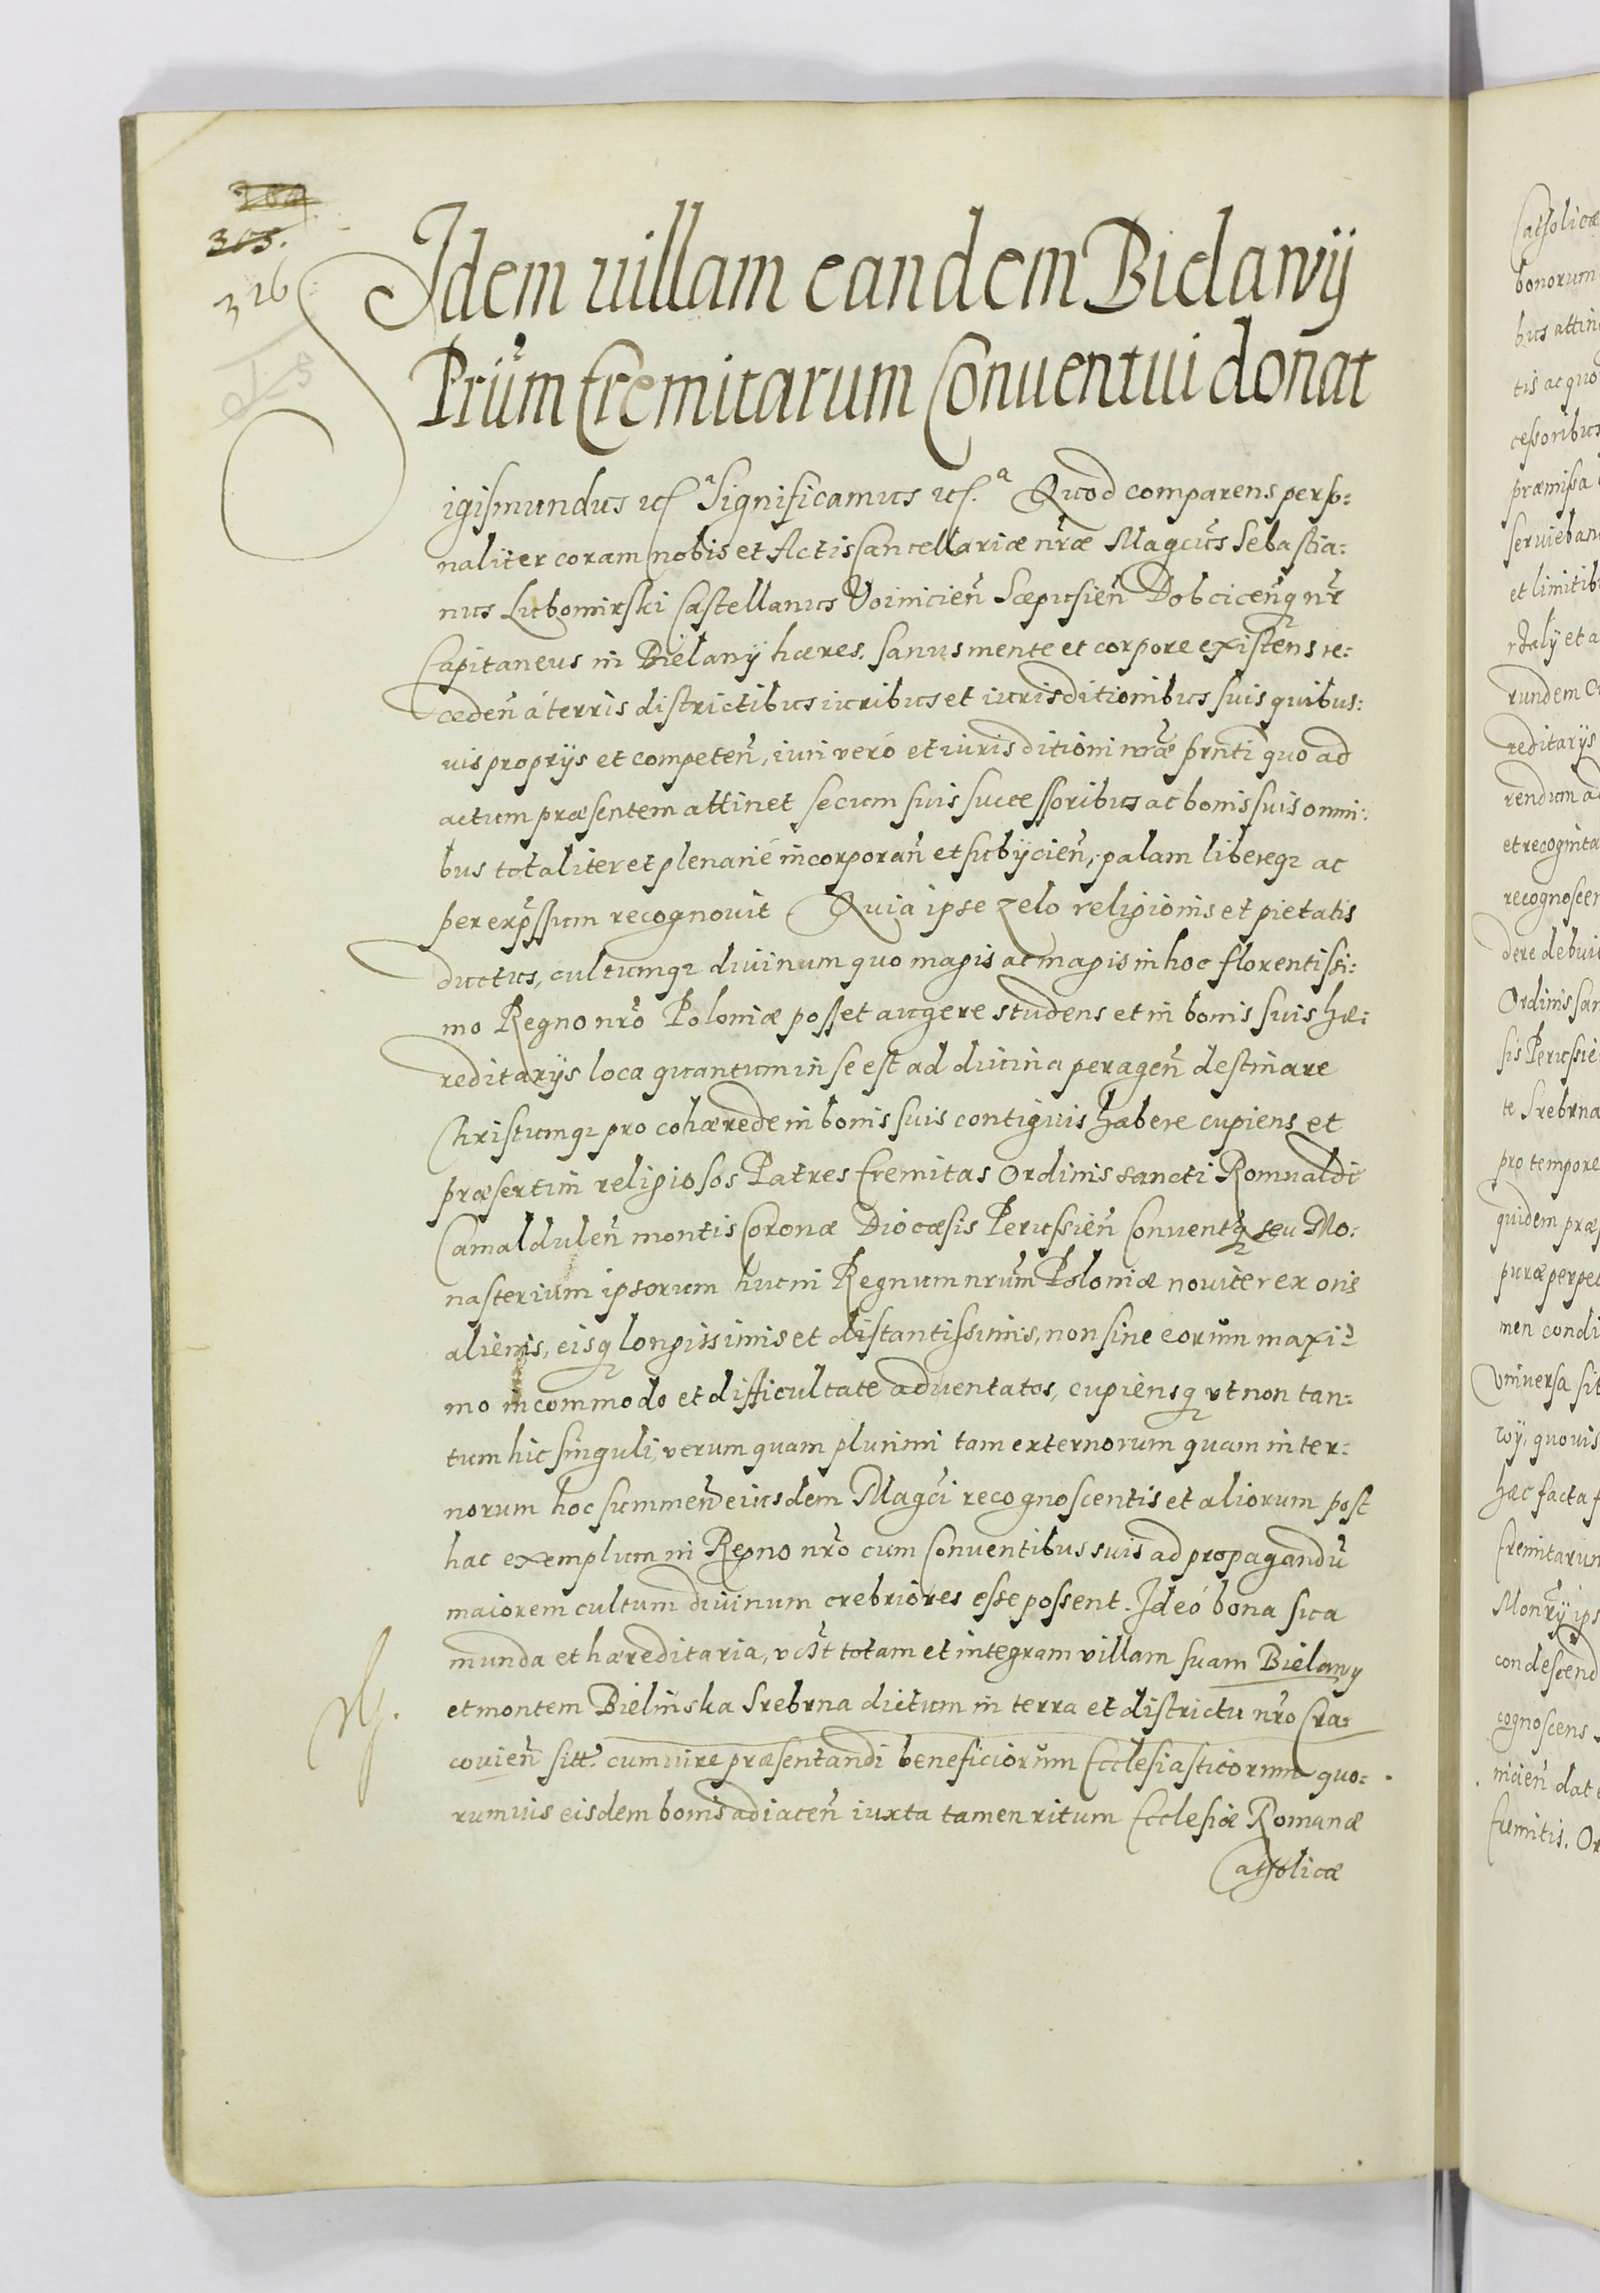 305.
326
Idem uillam eandem Bielanÿ
Prūm Eremitarum Conuentui donat
Sigismundus etc.ᵃ Significamus etc.ᵃ Quod comparens perso:
naliter coram nobis et Actis Cancellariæ nr̃æ Magcūs Sebastia:
nus Lubomirski Castellanus Voinicień Scepusień Dobciceńq nr̃
Capitaneus in Bielanÿ hæres, sanus mente et corpore existens re:
cedeń á terris districtibus iuribus et iurisditionibus suis quibus:
uis proprÿs et competeń, iuri veró et iurisditioni nr̃æ pr̃nti quo ad
actum præsentem attinet secum suis successoribus ac bonis suis omni:
bus totaliter et plenarié incorporań et subÿcień, palam libereq ac
per exp̃ssum recognouit Quia ipse zelo religionis et pietatis
ductus, cultumq diuinum quo magis ac magis in hoc florentissi:
mo Regno nr̃o Poloniæ posset augere studens et in bonis suis hæ:
reditarÿs loca quantum in se est ad diuina perageń destinare
Christumq pro cohærede in bonis suis contiguis habere cupiens et
præsertim religiosos Patres Eremitas Ordinis sancti Romualdi
Camalduleń montis Coronæ Diocæsis Perussień Conventq seu Mo:
nasterium ipsorum huc in Regnum nr̃um Poloniæ nouiter ex oris
alienis, eisq longissimis et distantissimis, non sine eorum maxi:
mo incommodo et difficultate aduentatos, cupiensq vt non tan:
tum hic singuli, verum quam plurimi tam externorum quam inter:
norum hoc summeń eiusdem Magci recognoscentis et aliorum post
hac exemplum in Regno nr̃o cum Conuentibus suis ad propagandū
maiorem cultum diuinum crebriores esse possent. Ideó bona sua
munda et hæreditaria, vc̃t totam et integram villam suam Bielany
et montem Bielinska Srebrna dictum in terra et districtu nr̃o Cra:
couień sitt. cum iure præsentandi beneficiorum Ecclesiasticorum quo:
rumuis eisdem bonis adiaceń iuxta tamen ritum Ecclesiæ Romanæ
Catholicæ
Catholicæ
bonorum
tis ac quo
cessoribus
præmissa
seruieban
et limitib
rundem
reditarÿs
rendum ad
et recognita
recognoscen
dere debuit
Ordinis san
sis Perussie
te Srebrna
pro tempore
quidem præ
puræ perpe
men condi
Vniuersa sit
quouis
hæc facta f
Eremitarum
condescend
cognoscens
nicień dat
Eremitis. Or